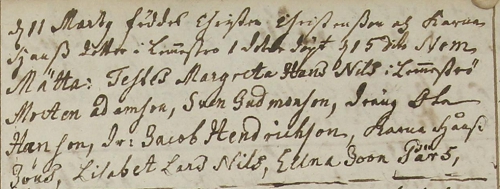 d 11 Marty föddes Christen Christensen og Karna
Hanss dotter i Lemmestro 1 doter döpt d 15 dito Nom
Mätta: Testes Margreta Hans Nils i Lemmeströ
Morten Adamson, Sven Gudmonson, dräng Ola
Hanson, Dr: Jacob Hendrichson, Karna Hans
Jöns, Lisabet Lars Nils, Elina Joon Pärs,